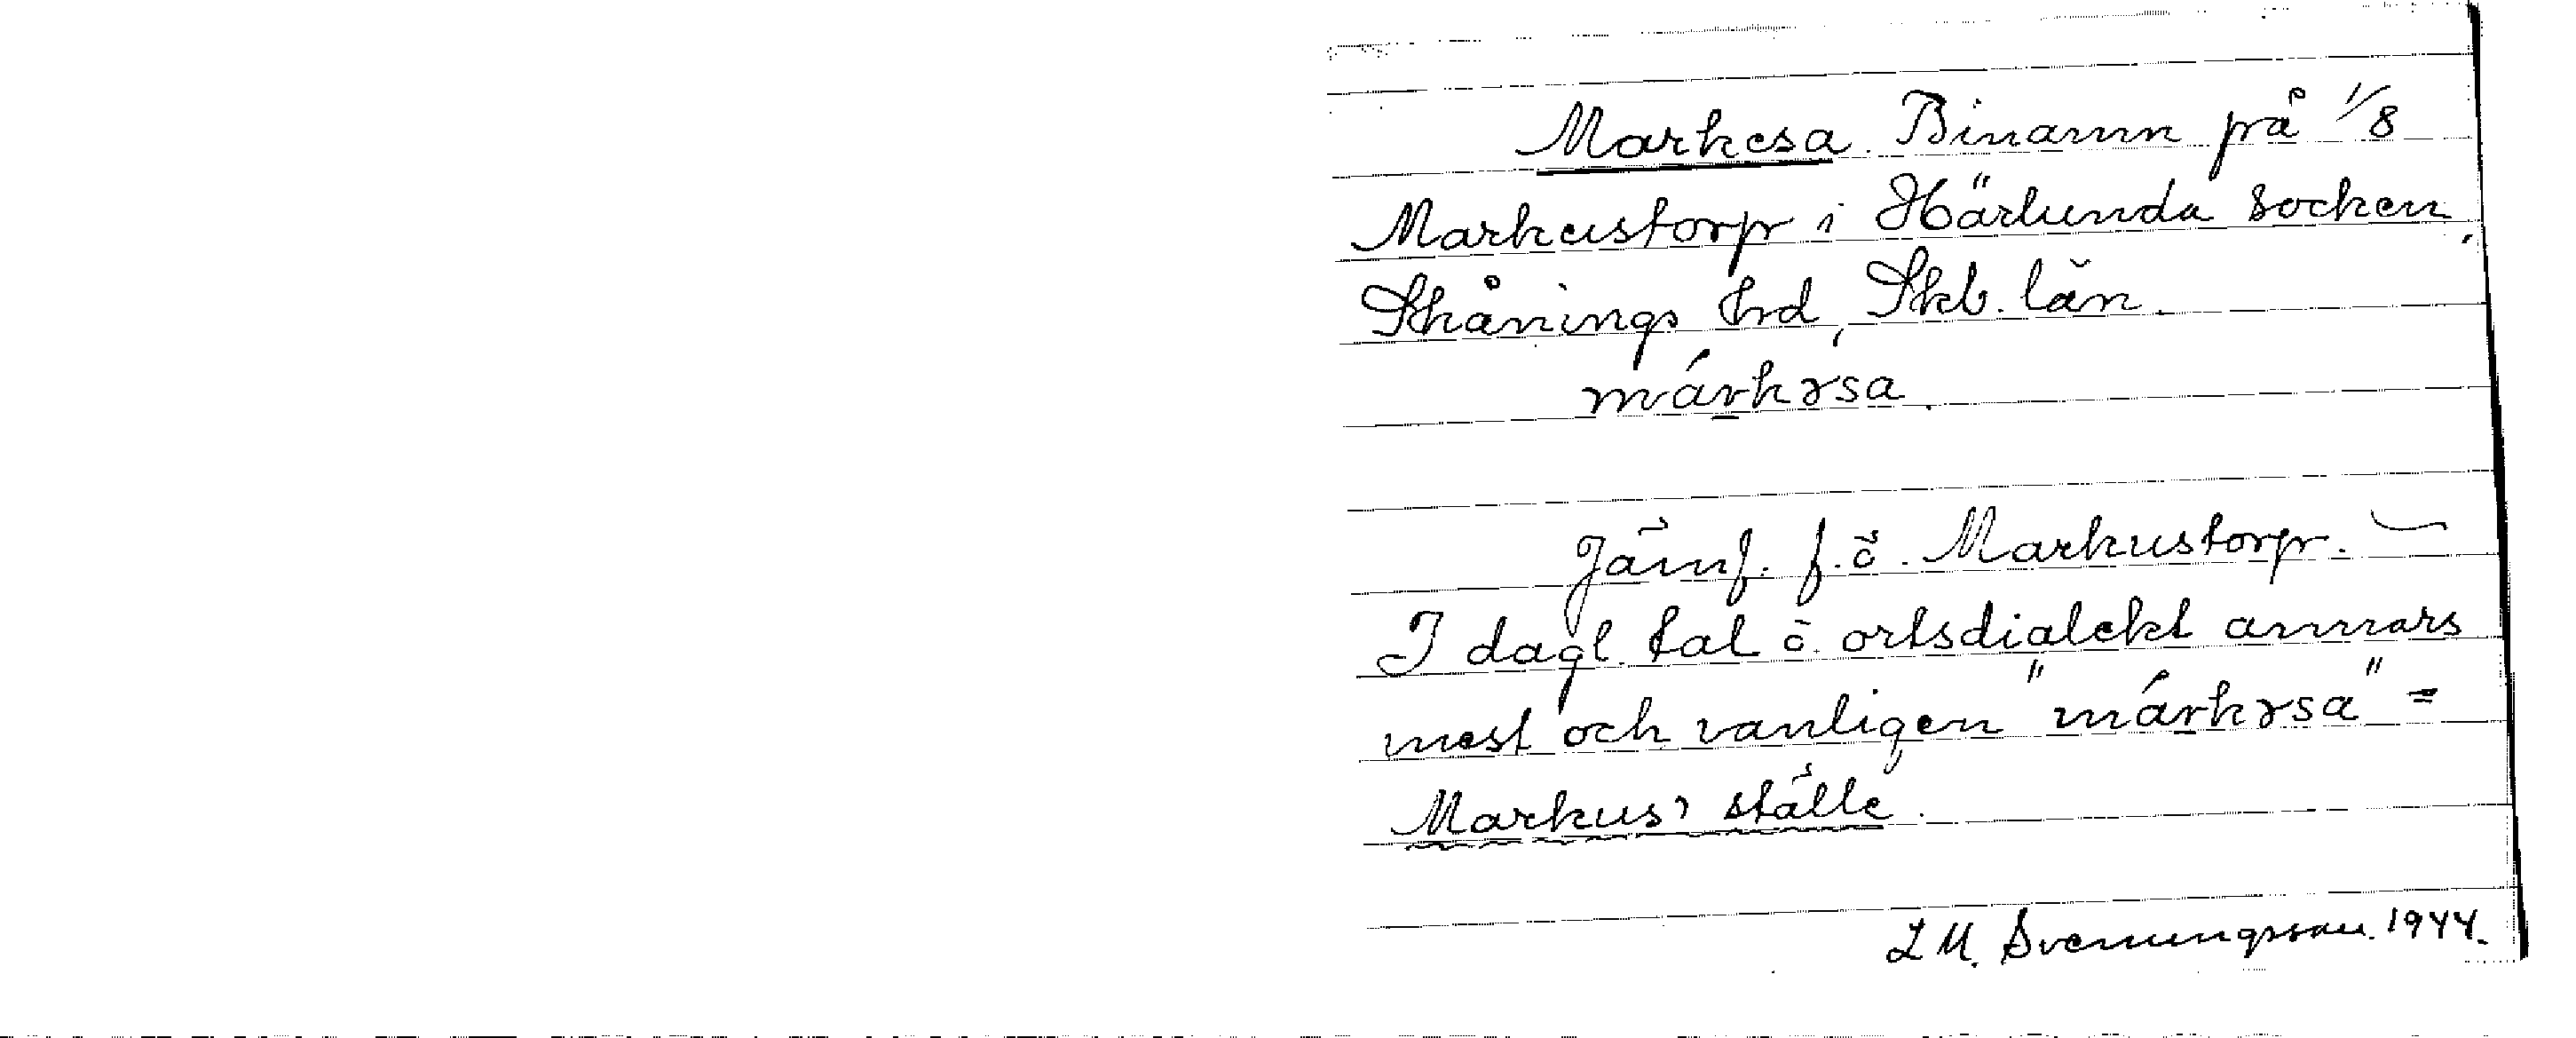 Markesa. Binamn på 1/8
Markustorp i Härlunda socken,
Skånings hrd, Skb. län.
márkɤsa.
Jämf. f.ö. Markustorp. —
I dagl. tal o. ortsdialekt annars
mest och vanligen "márkɤsa" =
Markus' ställe.
L M. Svenungsson. 1944.